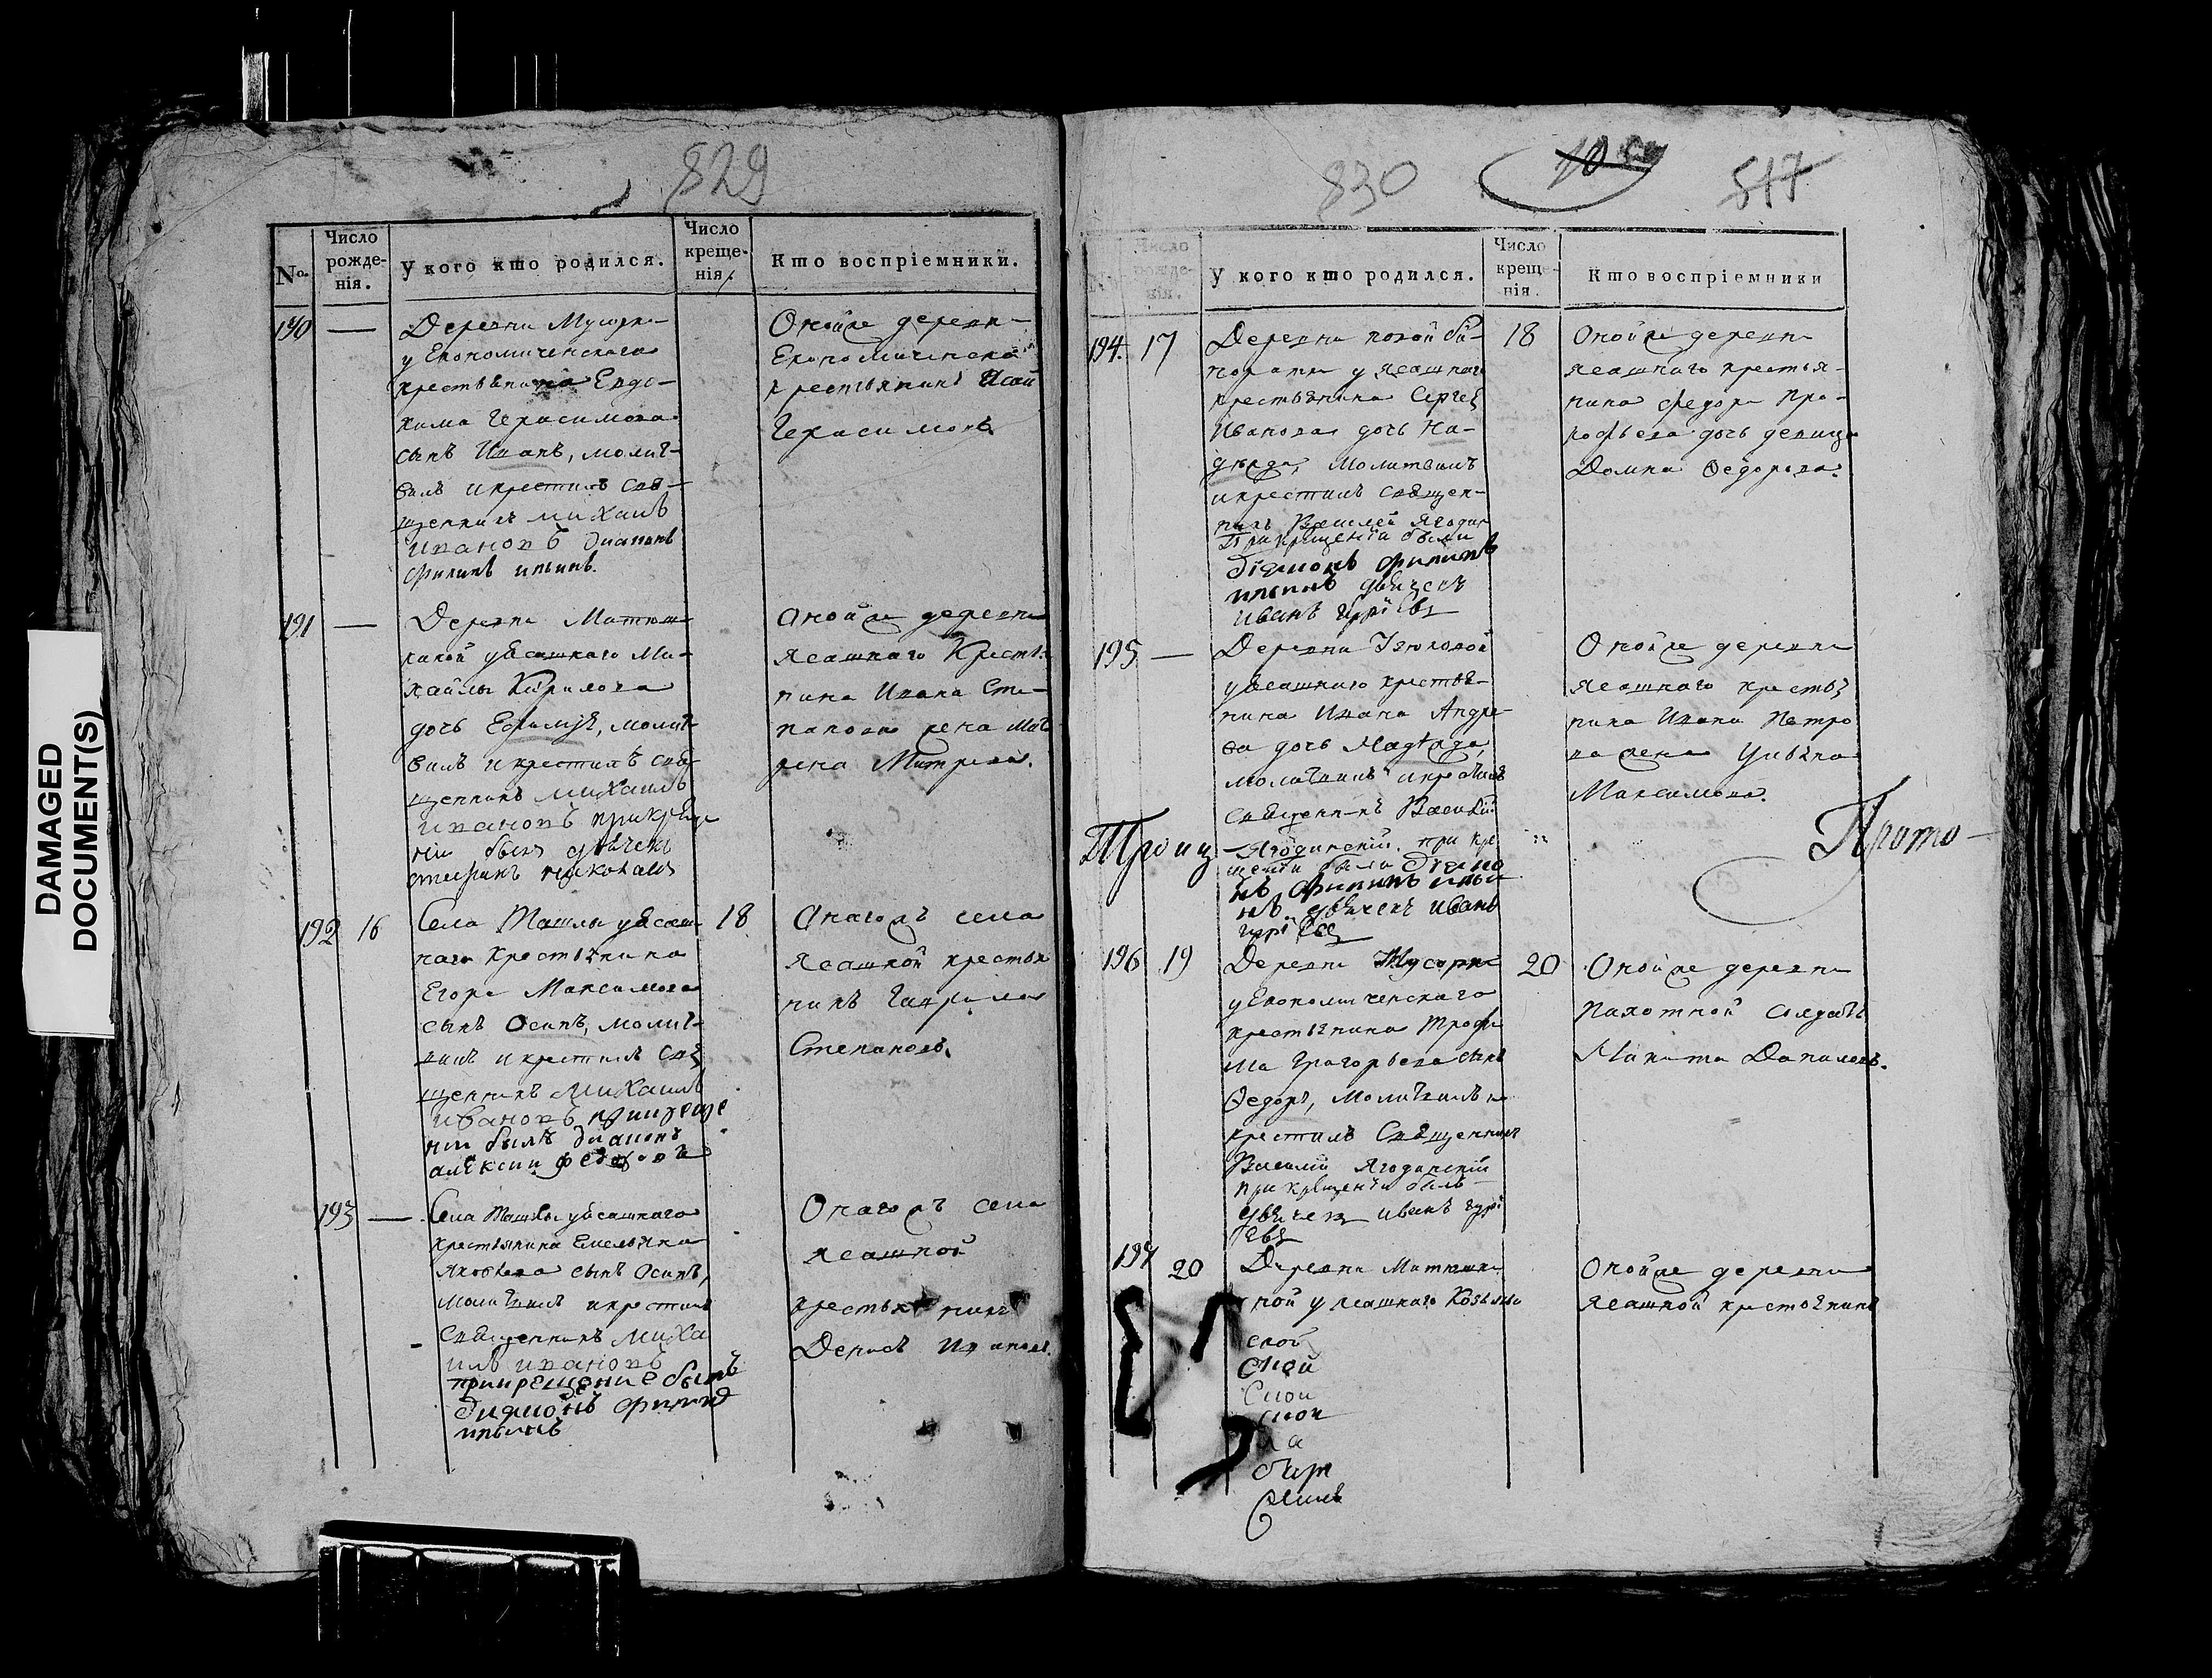 DAMAGED
DOCUMENT(S)
829
№
Число
рожде-
нія.
У кого кто родился.
Число
креще-
нія.
Кто воспріемники.
190 —
Деревни Мусорки
у Економическаго
крестьянина Евдо-
кима Герасимова
сынъ Иванъ, молит-
вилъ и крестилъ свя-
щенникъ Михаилъ
Ивановъ диаконъ
Филипъ
Оной же деревни
Економической
крестьянинъ Исай
Герасимовъ
191 —
Деревни Матюш-
киной у ясашнаго Ми-
хайлы Кирилова
дочь молит-
вилъ и крестилъ свя-
щенникъ Михаилъ
Ивановъ при креще
ніи былъ дьячекъ
Оной же деревни
Ясашнаго Крестья
нина Ивана Сте-
панова жена Мат
рена
192 16
Села Ташлы у ясаш
наго крестьянина
Егора Максимова
сынъ Осипъ, молит-
вилъ и крестилъ свя
щенникъ Михаилъ
Ивановъ при креще
ніи былъ диаконъ
алексии федоровъ
18
Онагожъ села
Ясашной крестья
нинъ Гаврила
Степановъ.
193 —
Села Ташлы у ясашнаго
крестьянина Емельяна
Яковлева сынъ Осипъ,
молитвилъ и крестилъ
Священникъ Миха
илъ Ивановъ
при крещение былъ
диаконъ Филипъ
Онагожъ села
ясашной
крестьянинъ
Денисъ Ивановъ.
830
517
Число
рожде-
нія.
У кого кто родился.
Число
креще-
нія.
Кто воспріемники
194. 17
Деревни новой Би-
норатки у ясашнаго
крестьянина Сергея
Иванова дочь На-
дежда, молитвилъ
и крестилъ священ-
никъ Василей Ягодин
При крещеніи были
диаконъ Филипъ
дьячекъ
Иванъ
18
Оной же деревни
ясашнаго крестья-
нина Федора Про-
кофьева дочь девица
Домна Федорова.
195 —
Деревни
у ясашнаго крестья-
нина Ивана Андре-
ва дочь Надежда,
молитвилъ и крестилъ
священникъ Василій
Ягодинскій. при кре
щеніи были диако
нъ Филипъ Ильи
нъ. дьячекъ Иванъ
Оной же деревни
ясашнаго крестья
нина Ивана Петро
ва жена Ульяна
Максимова.
Прото-
196 19
Деревни Мусорки
у Економическаго
крестьянина Трофи
ма Григорьева сынъ
Федоръ, молитвилъ и
крестилъ Священникъ
Василій Ягодинскій
при крещеніи былъ
дьячекъ Иванъ
20
Оной же деревни
пахотной солдатъ
Никита Даниловъ.
197 20
Деревни Матюшки
ной у ясашнаго
Оной же деревни
Ясашной крестьянинъ